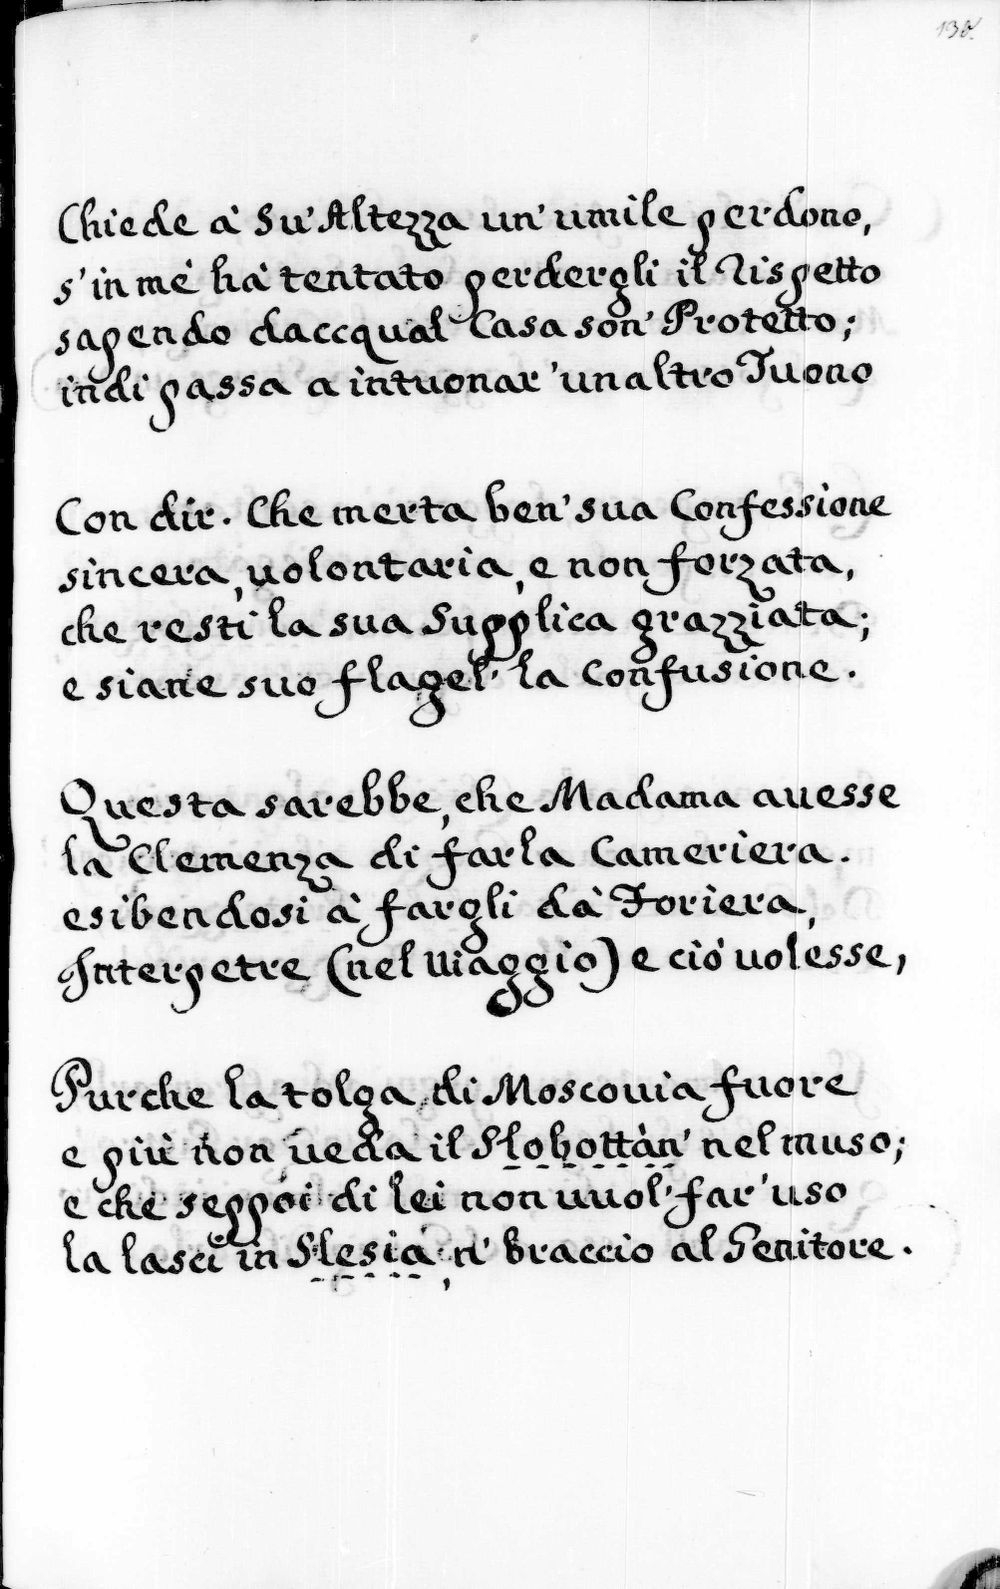 138.
Chiede à Su' Altezza un' umile perdono,
s' in mè hà tentato perdergli il Rispetto
sapendo daccqual Casa son' Protetto;
indi passa a intuonar' un altro Tuono
Con dir. Che merta ben' sua Confessione
sincera, uolontaria, e non forzata,
che resti la sua Supplica grazziata;
e siane suo flagel' la Confusione.
Questa sarebbe, che Madama auesse
la Clemenza di farla Cameriera.
esibendosi à fargli dà Foriera,
Interpetre (nel Uiaggio) e ciò uolesse,
Purche la tolga di Moscouia fuore
e più non ueda il Slobottàn' nel muso;
e che seppoi di lei non uuol' far' uso
la lasci in Slesia, n' braccio al Genitore.